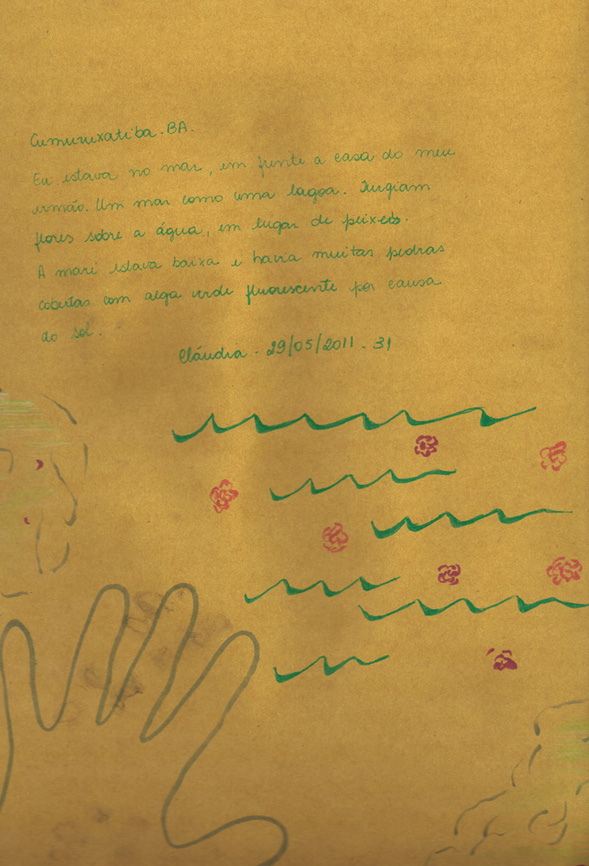 Cumuruxatiba.BA.
Eu estava no mar, em frente a casa do meu
irmão. Um mar como uma lagoa. Surgiam
flores sobre a água, em lugar de peixes.
A maré estava baixa e havia muitas pedras
cobertas com alga verde fluorescente por causa
do sol.
Cláudia - 29/05/2011 - 31